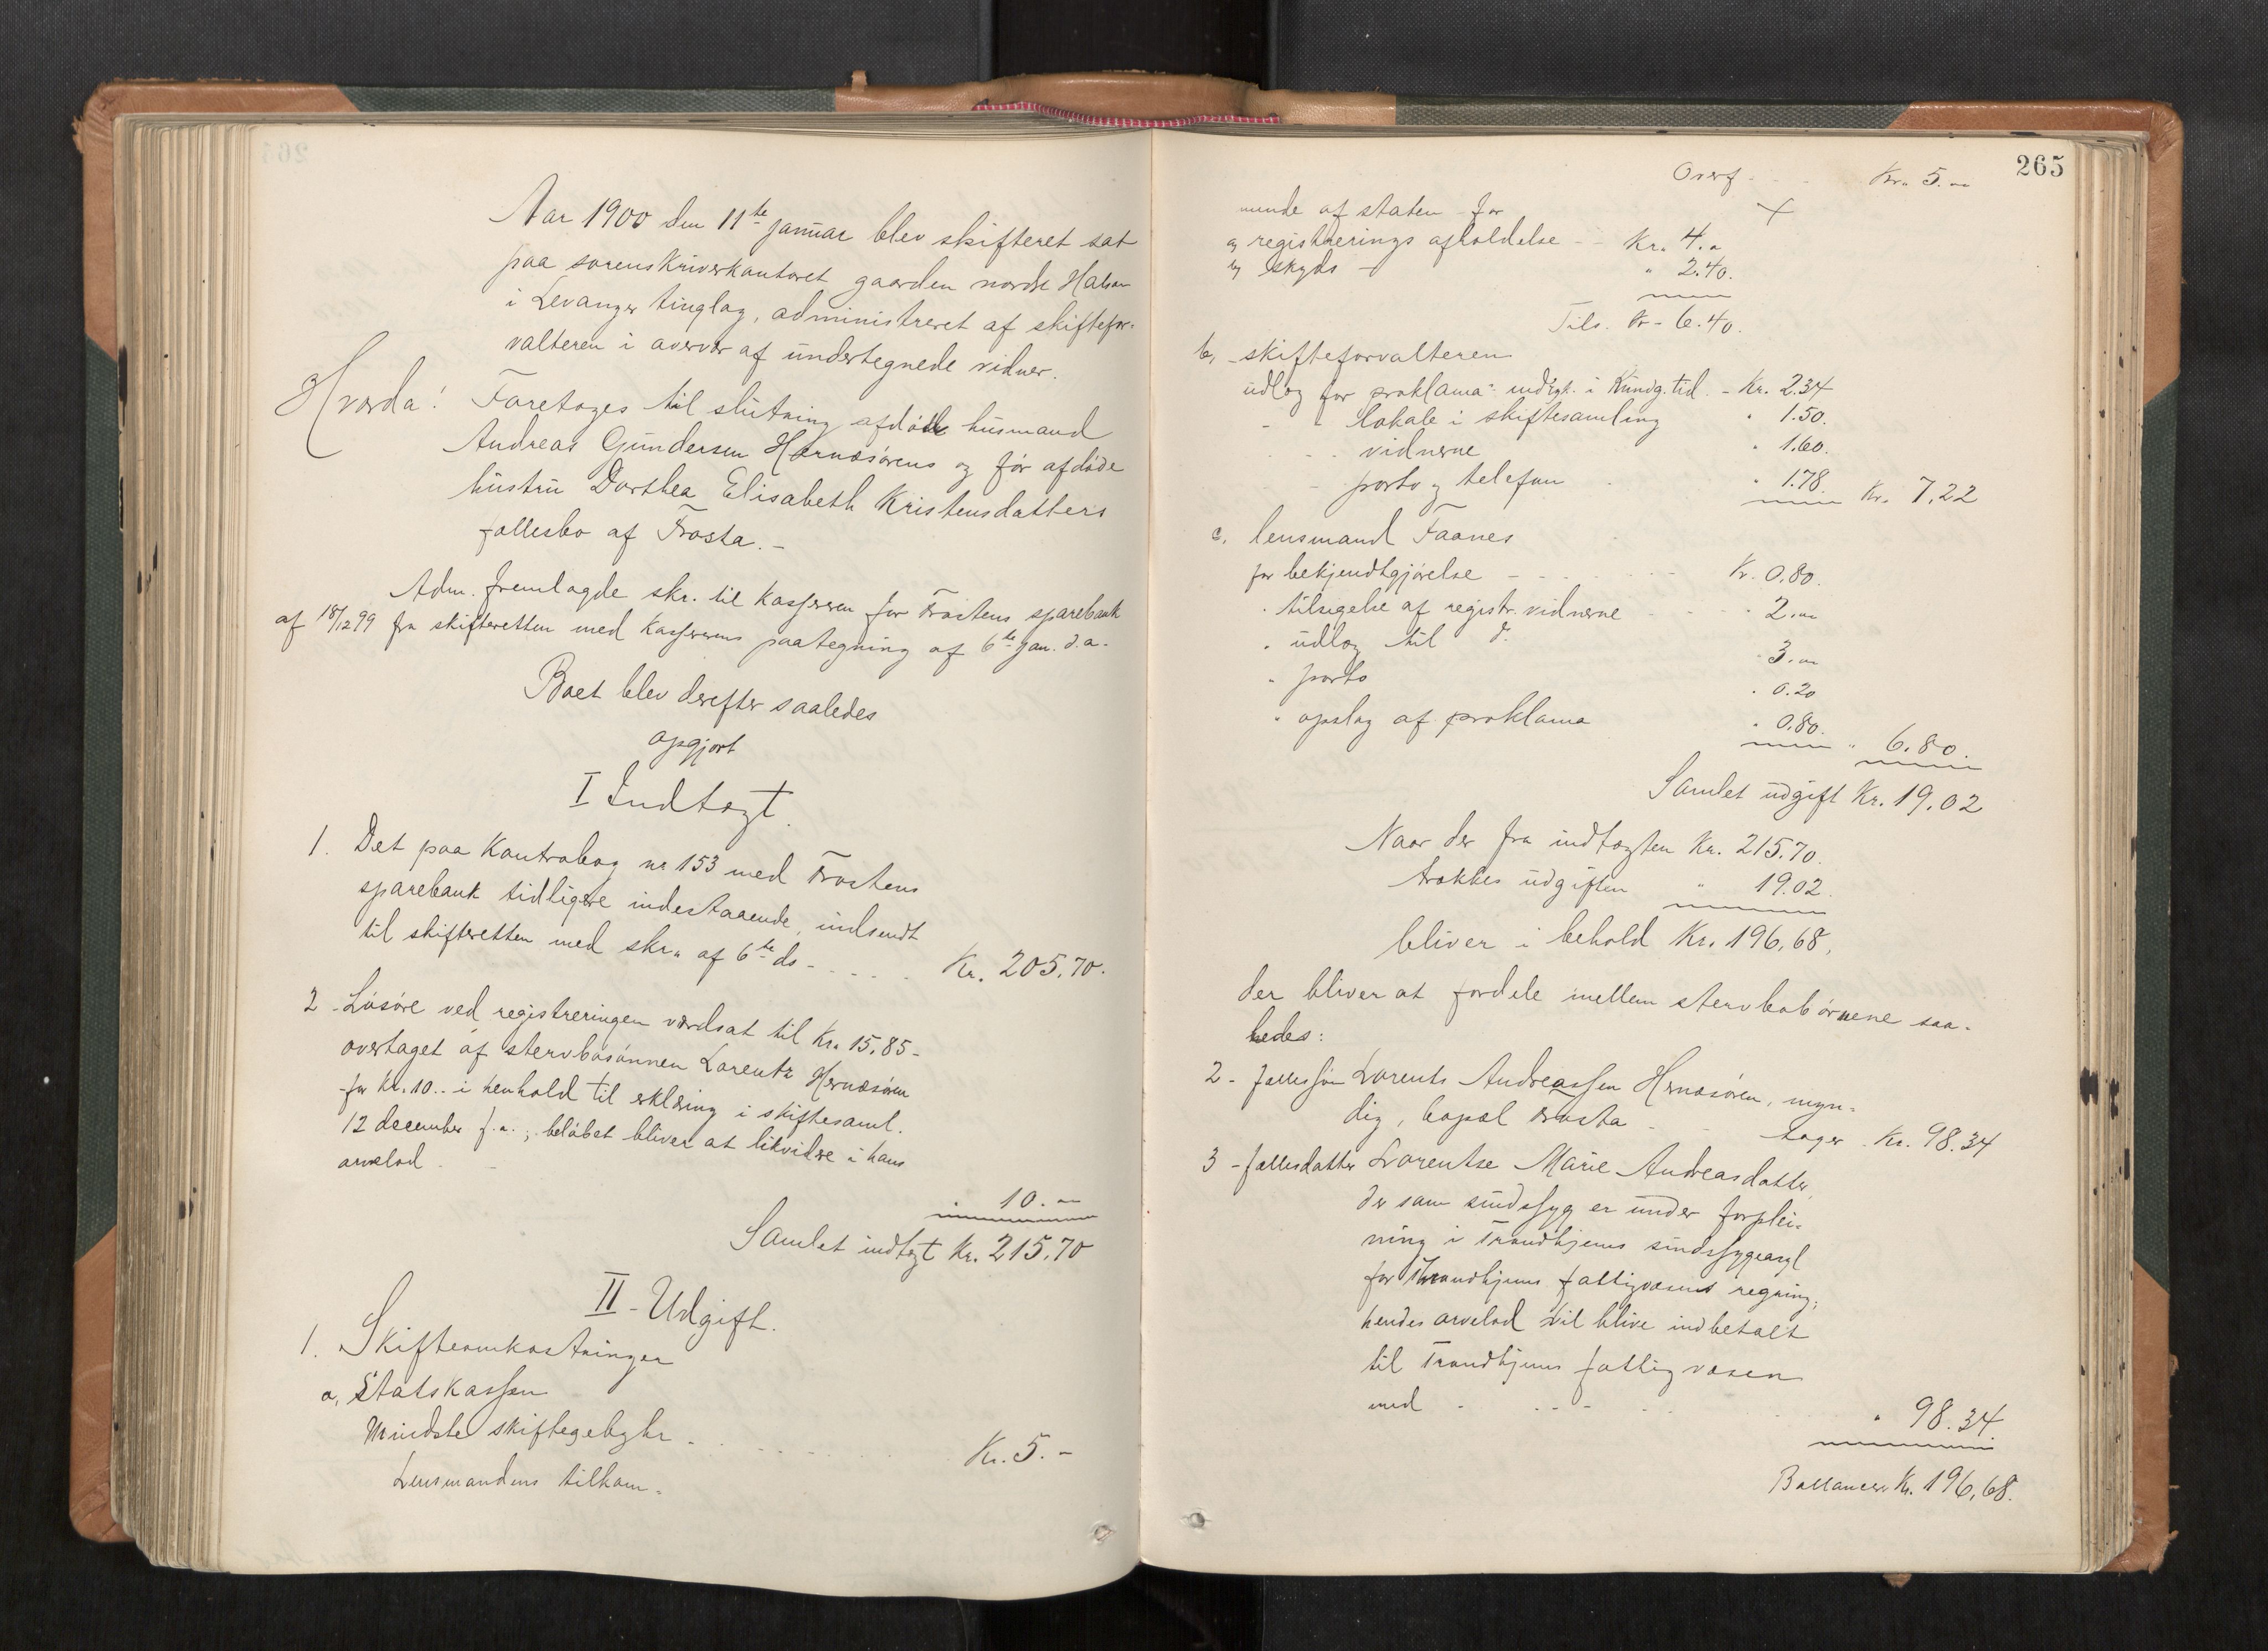 Aar 1900 den 11te januar blev skifteret sat
paa sorenskriverkontoret gaarden nordre Halsan
i Levanger tinglag, administreret af skiftefor-
valteren i overvær af undertegnede vidner.
Hvorda:
Foretoges til slutning afdøde husmand
Andreas Gundersen Hernæsørens og før afdøde
hustru Dorthea Elisabeth Kristensdatters
fællesbo af Frosta.-
Adm. fremlagde skr. til kassereren for Frostens sparebank
af 18/12 99 fra skifteretten med kassererens paategning af 6te jan. d.a.
Boet blev derefter saaledes
opgjort
I Indtægt.
1. Det paa kontrabog nr 153 med Frostens
sparebank tidligere indestaaende, indsendt
til skifteretten med skr. af 6te ds - - - - - Kr. 205.70.
2 - Løsøre ved registreringen værdsat til Kr. 15,85 -
overtaget af stervbosønnen Lorentz Hernæsøren
- for Kr. 10.. i henhold til erklæring i skiftesaml.
12 december f.a.; beløbet bliver at likvidere i hans
arvelod. -
" 10. -
Samlet indtægt Kr. 215.70
II - Udgift.
1. Skifteomkostninger
a, Statskassen
Mindste skiftegebyhr - - - - - - - Kr. 5. -
Lensmandens tilkom-
265
Overf - - - Kr. 5. -
mende af staten for
a, registrerings afholdelse - - Kr. 4. -
b, skyds - " 2.40.
Tils. Kr - 6.40.
b, - skifteforvalteren
udlæg for proklama: indryk. i Kundg. tid. - Kr. 2.34
- - lokale i skiftesamling " 1.50.
- - - vidnerne " 1.60.
- - porto og telefon " 1.78 Kr. 7.22
c, lensmand Faanes
for bekjendtgjørelse - - - - - - Kr. 0.80.
" tilsigelse af registr. vidnerne - - - " 2. -
" udlæg til d. " 3. -
" porto " 0.20
" opslag af proklama " 0.80. " 6.80.
Samlet udgift Kr. 19.02
Naar der fra indtægten Kr. 215.70.
trækkes udgiften " 19.02.
bliver i behold Kr. 196,68.
der bliver at fordele mellem stervbobørnene saa-
ledes:
2 - fællessøn Lorents Andreassen Hernæsøren, myn-
dig, bopæl Frosta - - tager - Kr. 98.34
3 - fællesdatter Lorentse Marie Andreasdatter,
der som sindssyg er under forplei-
ning i Trondhjems sindssygeasyl
for Trondhjems fattigvæsens regning;
hendes arvelod vil blive indbetalt
til Trondhjems fattigvæsen
med - - - - - - " 98.34.
Ballancer Kr. 196,68.